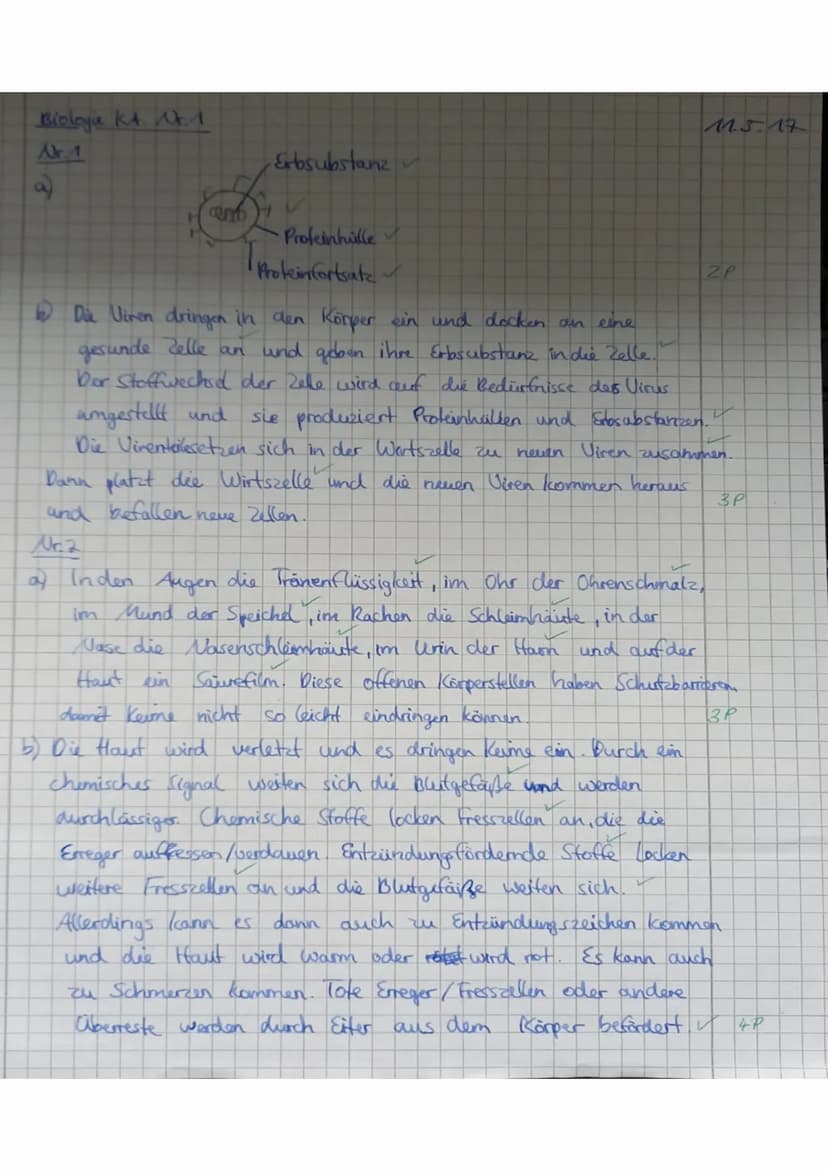 Biologie KA Nr.1
11.5.17
Nr.1
a)
Erbsubstanz
Proteinhülle
Proteinfortsatz
2P
b) Die Viren dringen in den Körper ein und docken an eine
gesunde Zelle an und geben ihre Erbsubstanz in die Zelle.
Der Stoffwechsel der Zelle wird auf die Bedürfnisse das Virus
umgestellt und sie produziert Proteinhüllen und Erbsubstanzen.
Die Virenteile setzen sich in der Wirtszelle zu neuen Viren zusammen.
Dann platzt die Wirtszelle und die neuen Viren kommen heraus
3P
und befallen neue Zellen.
Nr.2
a) In den Augen die Tränenflüssigkeit, im Ohr der Ohrenschmalz,
im Mund der Speichel, im Rachen die Schleimhäute, in der
Nase die Nasenschleimhäute, im Urin der Harn und auf der
Haut ein Säurefilm. Diese offenen Körperstellen haben Schutzbarrieren
damit Keime nicht so leicht eindringen können.
3P
b) Die Haut wird verletzt und es dringen Keime ein. Durch ein
chemisches Signal weiten sich die Blutgefäße und werden
durchlässiger. Chemische Stoffe locken Fresszellen an, die die
Erreger auffressen/verdauen. Entzündungsfördernde Stoffe locken
weitere Fresszellen an und die Blutgefäße weiten sich.
Allerdings kann es dann auch zu Entzündungszeichen kommen
und die Haut wird warm oder wird rot. Es kann auch
zu Schmerzen kommen. Tote Erreger/Fresszellen oder andere
Überreste werden durch Eiter aus dem Körper befördert.
4P